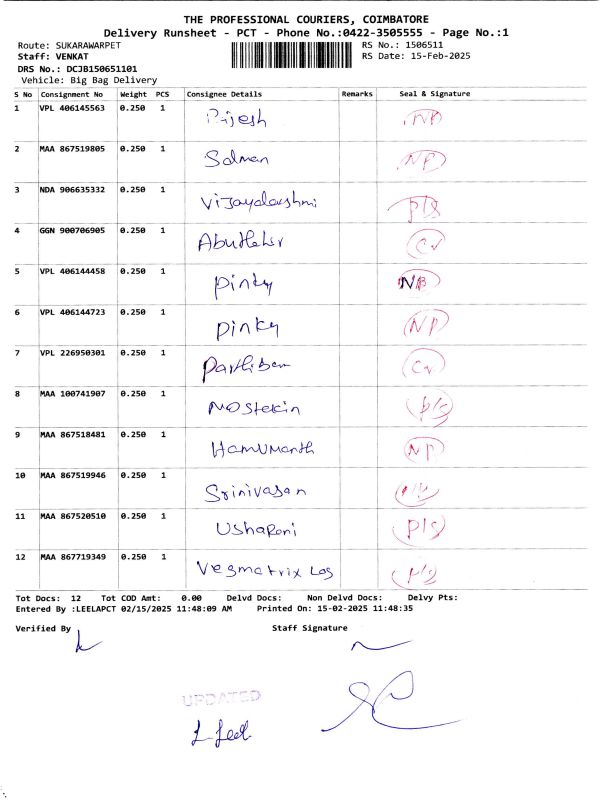 THE PROFESSIONAL COURIERS, COIMBATORE
Delivery Runsheet - PCT - Phone No.:0422-3505555 - Page No.:1
Route: SUKARAWARPET RS No.: 1506511
Staff: VENKAT RS Date: 15-Feb-2025
DRS No.: DCJB150651101
Vehicle: Big Bag Delivery
S No Consignment No Weight PCS Consignee Details Remarks Seal & Signature
1 VPL 406145563 0.250 1 Rijesh NP
2 MAA 867519805 0.250 1 Salman NP
3 NDA 906635332 0.250 1 Vijayalakshmi pls
4 GGN 900706905 0.250 1 Abuthahir Cv
5 VPL 406144458 0.250 1 pinky
6 VPL 406144723 0.250 1 pinky NP
7 VPL 226950301 0.250 1 Parthiban Cv
8 MAA 100741907 0.250 1 Mostekin pls
9 MAA 867518481 0.250 1 Hamumanth NP
10 MAA 867519946 0.250 1 Srinivasan
11 MAA 867520510 0.250 1 UshaRani pls
12 MAA 867719349 0.250 1 Vegmatrix Los pls
Tot Docs: 12 Tot COD Amt: 0.00 Delvd Docs: Non Delvd Docs: Delvy Pts:
Entered By :LEELAPCT 02/15/2025 11:48:09 AM Printed On: 15-02-2025 11:48:35
Verified By Staff Signature
UPDATED